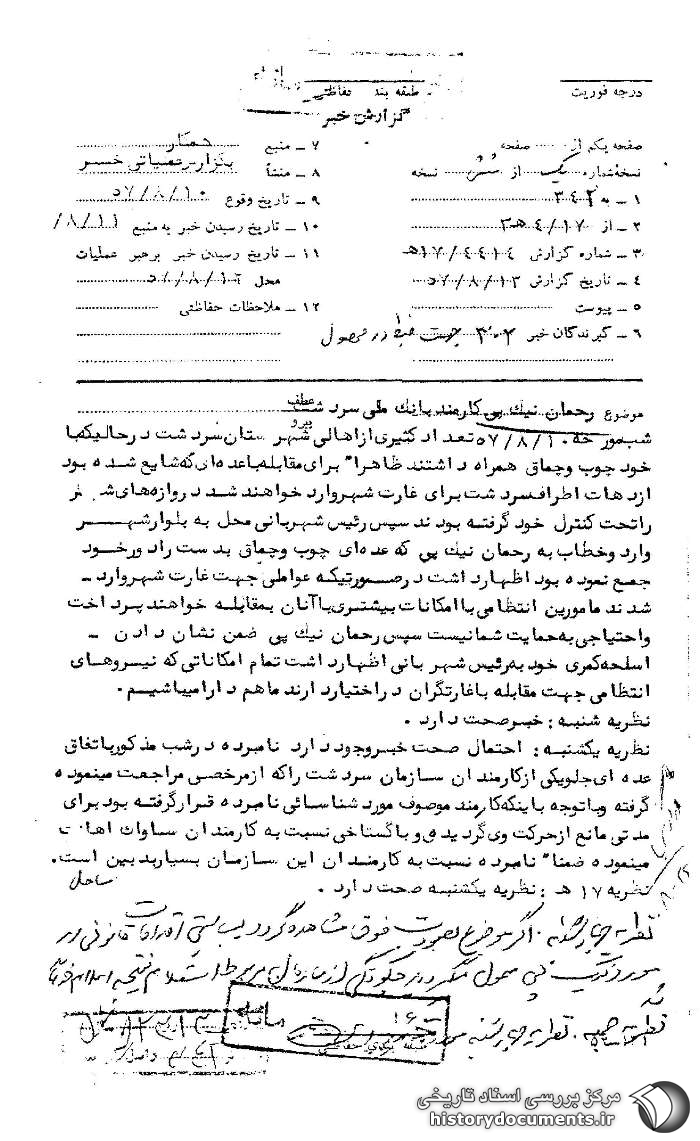 درجه فوریت
طبقه بندی حفاظتی
گزارش خبر
صفحه یکم از صفحه
نسخه شماره یک از شش نسخه
۱ - به ۳۴۲
۲ - از ۴/۱۷ ه‍۳
۳ - شماره گزارش ۱۷/۴۴۱۴ه‍
۴ - تاریخ گزارش ۵۷/۸/۱۳
۵ - پیوست
۶ - گیرندگان خبر ۳۰۲ جهت
۷ - منبع همکار
۸ - منشأ
۹ - تاریخ وقوع ۵۷/۸/۱۰
۱۰ - تاریخ رسیدن خبر به منبع ۸/۱۱/
۱۱ - تاریخ رسیدن خبر برهبر عملیات
محل
۱۲ - ملاحظات حفاظتی
موضوع رحمان نیک پی کارمند بانک ملی سردشت
عطف
پیرو
شب مورخه ۵۷/۸/۱۰ تعداد کثیری از اهالی شهرستان سردشت در حالیکه با
خود چوب و چماق همراه داشتند ظاهراً برای مقابله با عده ای که شایع شده بود
از دهات اطراف سردشت برای غارت شهر وارد خواهند شد دروازه های شهر
را تحت کنترل خود گرفته بودند سپس رئیس شهربانی محل به بلوار شهر
وارد و خطاب به رحمان نیک پی که عده ای چوب و چماق بدست را دور خود
جمع نموده بود اظهار داشت در صورتیکه عواملی جهت غارت شهر وارد -
شدند مامورین انتظامی با امکانات بیشتری با آنان بمقابله خواهند پرداخت
و احتیاجی به حمایت شما نیست سپس رحمان نیک پی ضمن نشان دادن -
اسلحه کمری خود به رئیس شهربانی اظهار داشت تمام امکاناتی که نیروهای
انتظامی جهت مقابله با غارتگران در اختیار دارند ما هم دارا میباشیم.
نظریه شنبه : خبر صحت دارد .
نظریه یکشنبه : احتمال صحت خبر وجود دارد نامبرده در شب مذکور باتفاق
عده ای جلو یکی از کارمندان سازمان سردشت را که از مرخصی مراجعت مینموده
گرفته و با توجه باینکه کارمند موصوف مورد شناسائی نامبرده قرار گرفته بود برای
مدتی مانع از حرکت وی گردیده و با گستاخی نسبت به کارمندان ساواک اهانت
مینموده ضمناً نامبرده نسبت به کارمندان این سازمان بسیار بدبین است.
نظریه ۱۷ ه‍ : نظریه یکشنبه صحت دارد . ساحل
نظریه چهارشنبه . اگر موضوع بصورت فوق مشاهده گردد بایستی اقدامات قانونی در
مورد
نظریه جمعه . نظریه چهارشنبه
۱۶
مرکز بررسی اسناد تاریخی
historydocuments.ir